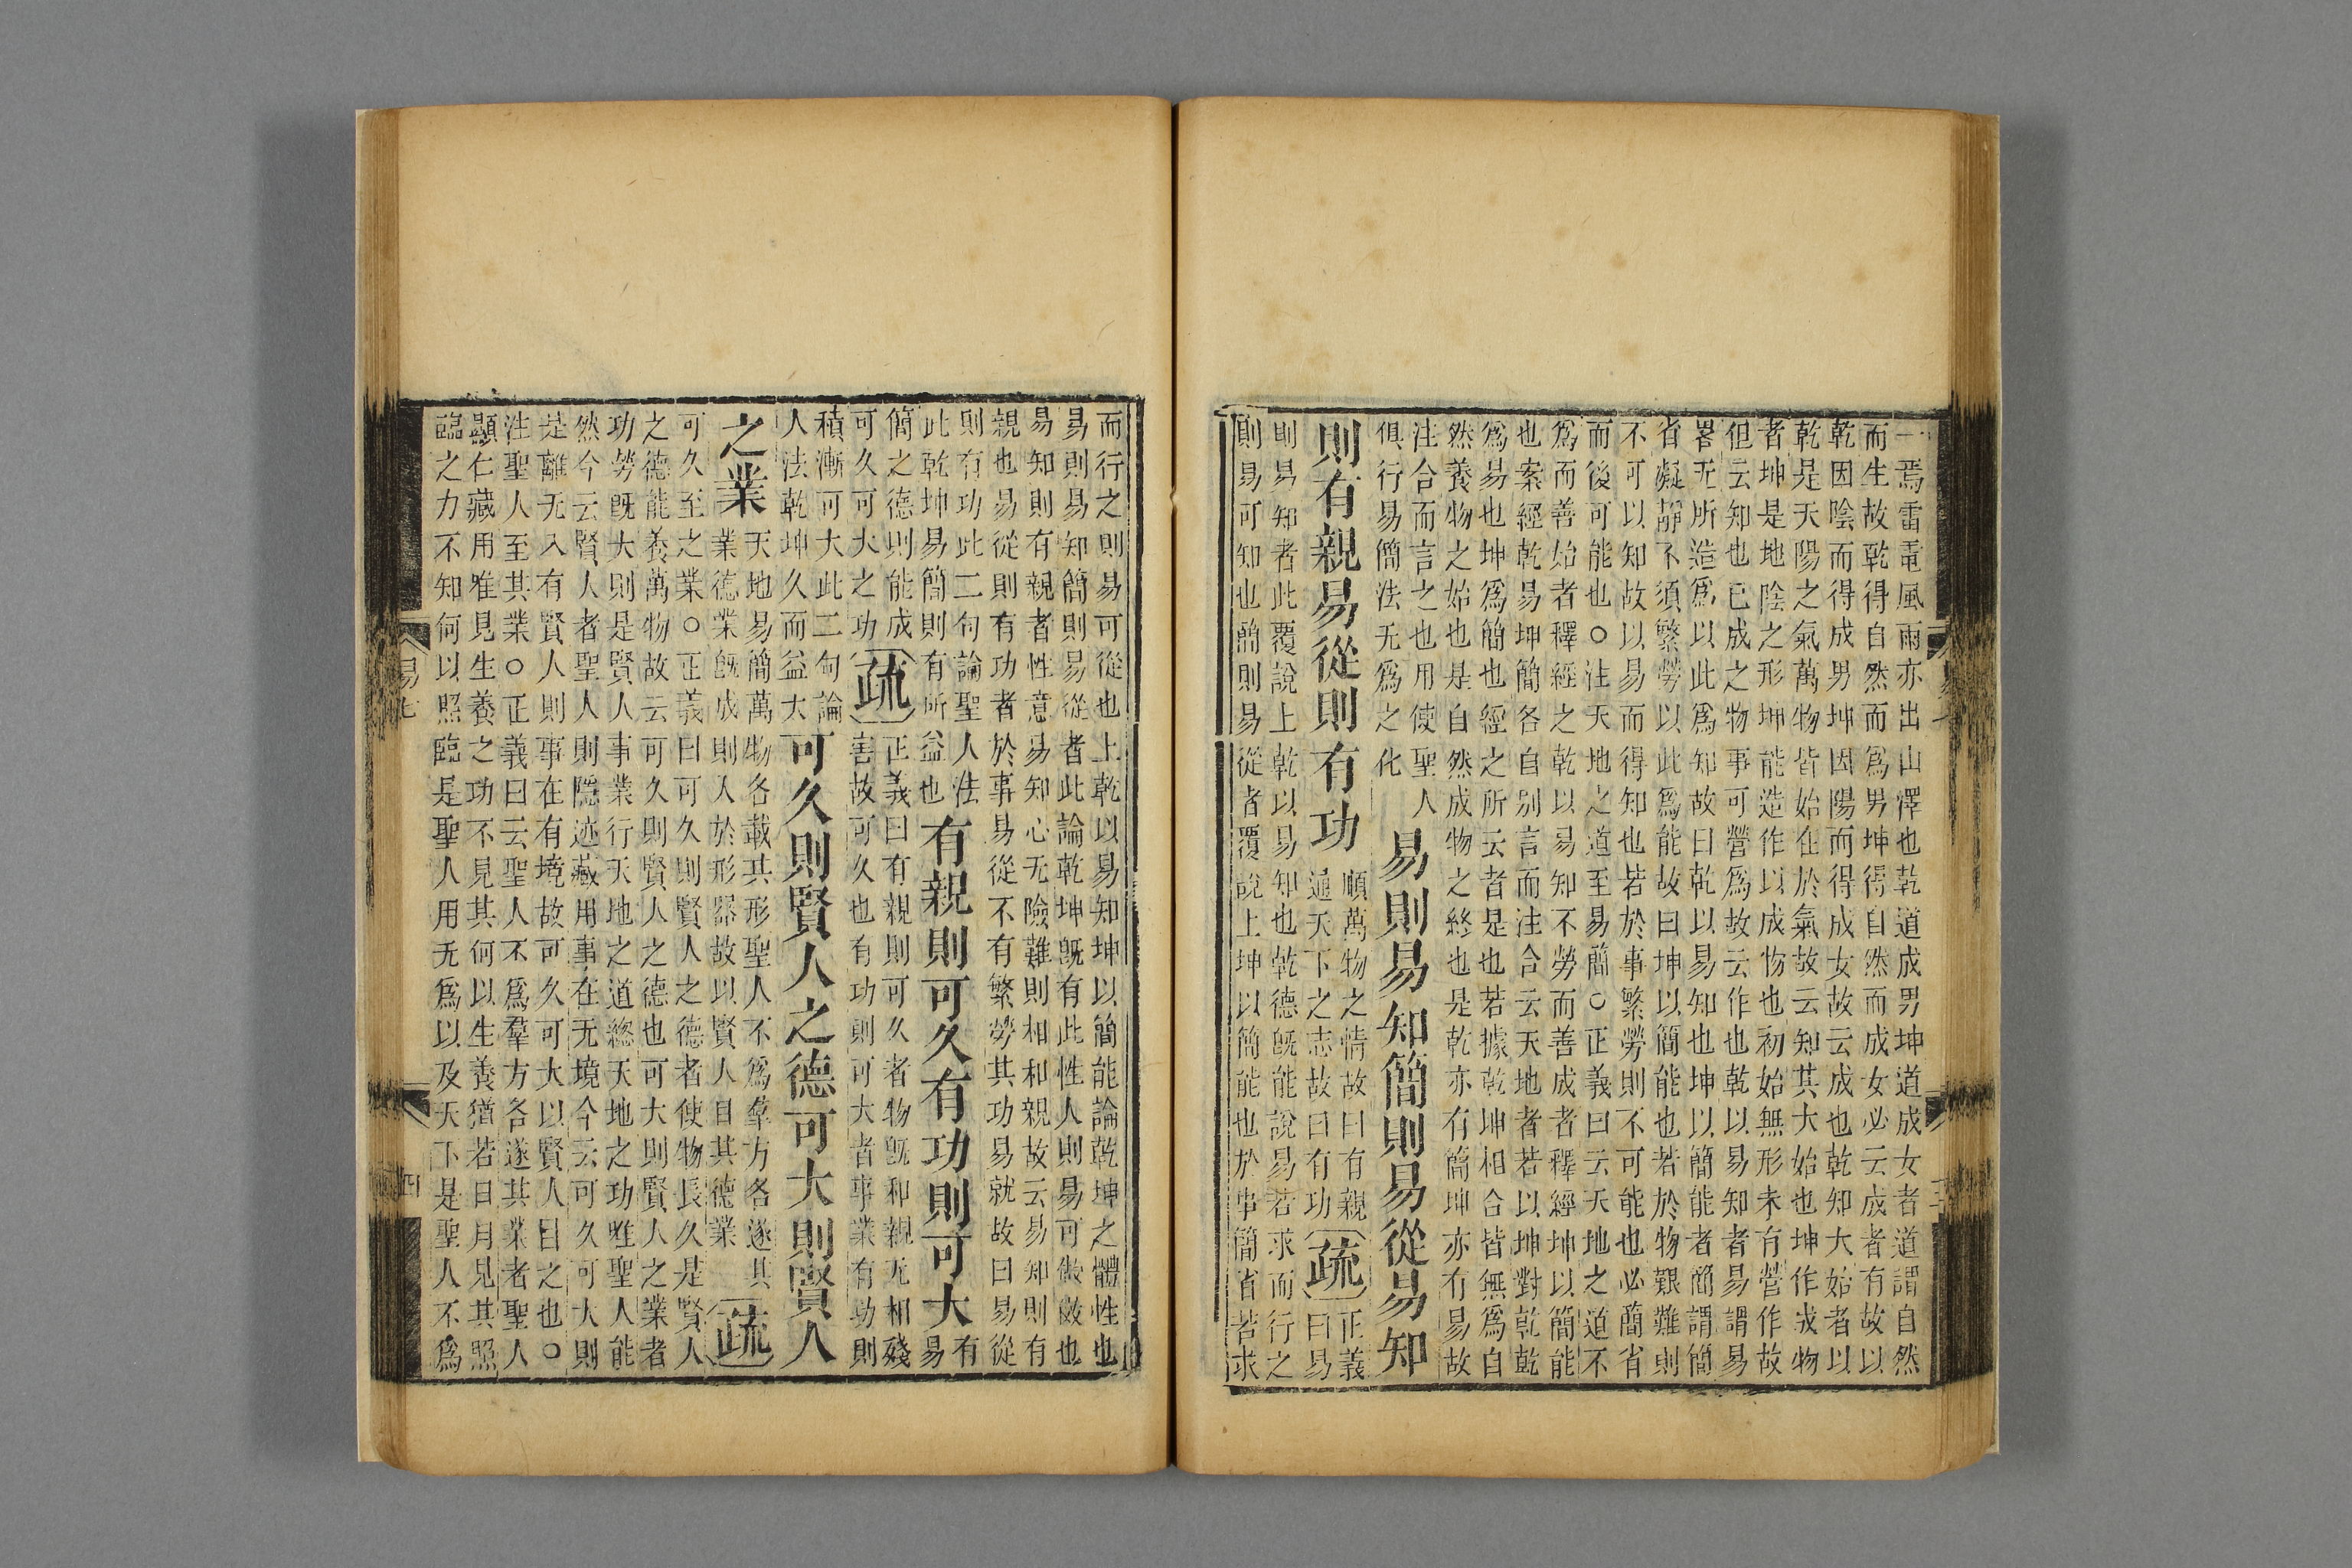 一焉雷電風雨亦出山澤也乾道成男坤道成女者道謂自然
而生故乾得自然而爲男坤得自然而成女必云成者有故以
乾因陰而得成男坤因陽而得成女故云成也乾知大始者以
乾是天陽之氣萬物皆始在於氣故云知其大始也坤作成物
者坤是地陰之形坤能造作以成物也初始無形未有營作故
但云知也已成之物事可營爲故云作也乾以易知者易謂易
畧无所造爲以此爲知故曰乾以易知也坤以簡能者簡謂簡
省凝靜不須繁勞以此爲能故曰坤以簡能也若於物艱難則
不可以知故以易而得知也若於事繁勞則不可能也必簡省
而後可能也○注天地之道至易簡○正義曰云天地之道不
爲而善始者釋經之乾以易知不勞而善成者釋經坤以簡能
也案經乾易坤簡各自别言而注合云天地者若以坤對乾乾
爲易也坤爲簡也經之所云者是也若據乾坤相合皆無爲自
然養物之始也是自然成物之終也是乾亦有簡坤亦有易故
注合而言之也用使聖人
俱行易簡法无爲之化
易則易知簡則易從易知
則有親易從則有功
順萬物之情故曰有親
通天下之志故曰有功
疏
正義
曰易
則易知者此覆說上乾以易知也乾德旣能說易若求而行之
則易可知也簡則易從者覆說上坤以簡能也於事簡省若求
而行之則易可從也上乾以易知坤以簡能論乾坤之體性也
易則易知簡則易從者此論乾坤旣有此性人則易可倣斆也
易知則有親者性意易知心无險難則相和親故云易知則有
親也易從則有功者於事易從不有繁勞其功易就故曰易從
則有功此二句論聖人法
此乾坤易簡則有所益也
有親則可久有功則可大
有
易
簡之德則能成
可久可大之功
疏
正義曰有親則可久者物旣和親无相殘
害故可久也有功則可大者事業有功則
積漸可大此二句論
人法乾坤久而益大
可久則賢人之德可大則賢人
之業
天地易簡萬物各載其形聖人不爲羣方各遂其
業德業旣成則入於形器故以賢人目其德業
疏
可久則賢人之德者使物長久是賢人
可久至之業○正義曰可久則賢人之德者使物長久是賢人
之德能養萬物故云可久則賢人之德也可大則賢人之業者
功勞旣大則是賢人事業行天地之道總天地之功唯聖人能
然今云賢人者聖人則隱迹藏用事在无境今云可久可大則
是離无入有賢人則事在有境故可久可大以賢人目之也○
注聖人至其業○正義曰云聖人不爲羣方各遂其業者聖人
顯仁藏用唯見生養之功不見其何以生養猶若日月見其照
臨之力不知何以照臨是聖人用无爲以及天下是聖人不爲
易七
四